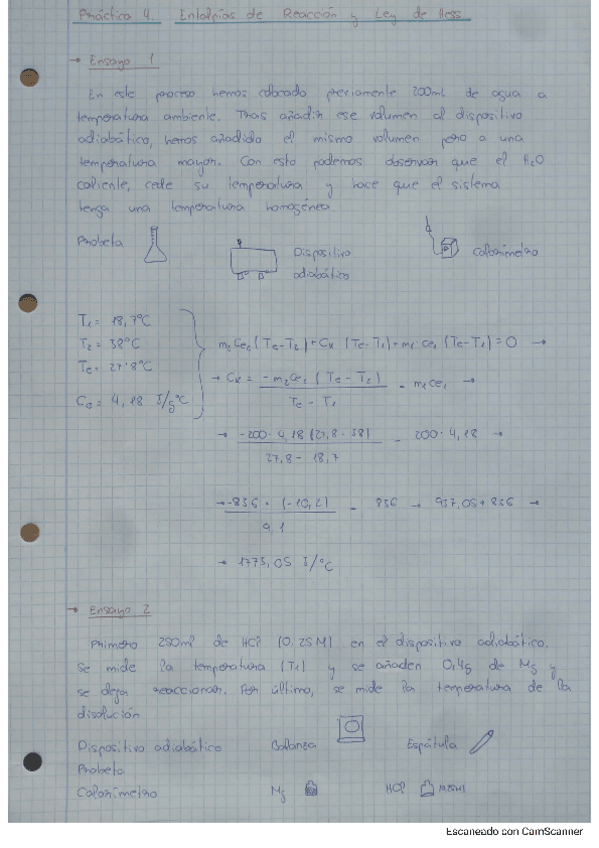 Práctica 4. Entalpías de Reacción y Ley de Hess
→ Ensayo 1
En este proceso hemos colocado previamente 200ml de agua a
temperatura ambiente. Tras añadir ese volumen al dispositivo
adiabático, hemos añadido el mismo volumen pero a una
temperatura mayor. Con esto podemos observar que el H2O
caliente, cede su temperatura y hace que el sistema
tenga una temperatura homogénea.
Probeta
Dispositivo
adiabático
Calorímetro
T1 = 18,7°C
T2 = 38°C
Te = 27'8°C
Ce = 4,18 J/g°C
m2 Ce2 (Te-T2) + Ck (Te-T1) + m1 ce1 (Te-T1) = 0 →
→ Ck = -m2 Ce2 (Te - T2) / Te - T1 - m1 ce1 →
→ -200 · 4,18 (27,8 - 38) / 27,8 - 18,7 - 200 · 4,18 →
→ -836 · (-10,2) / 9,1 - 836 → 937,05 + 836 →
→ 1773,05 J/°C
→ Ensayo 2
Primero 250ml de HCl (0,25M) en el dispositivo adiabático.
se mide la temperatura (T1) y se añaden 0,4g de Mg y
se deja reaccionar. Por último, se mide la temperatura de la
disolución
Dispositivo adiabático Balanza Espátula
Probeta
Calorímetro Mg HCl
Escaneado con CamScanner